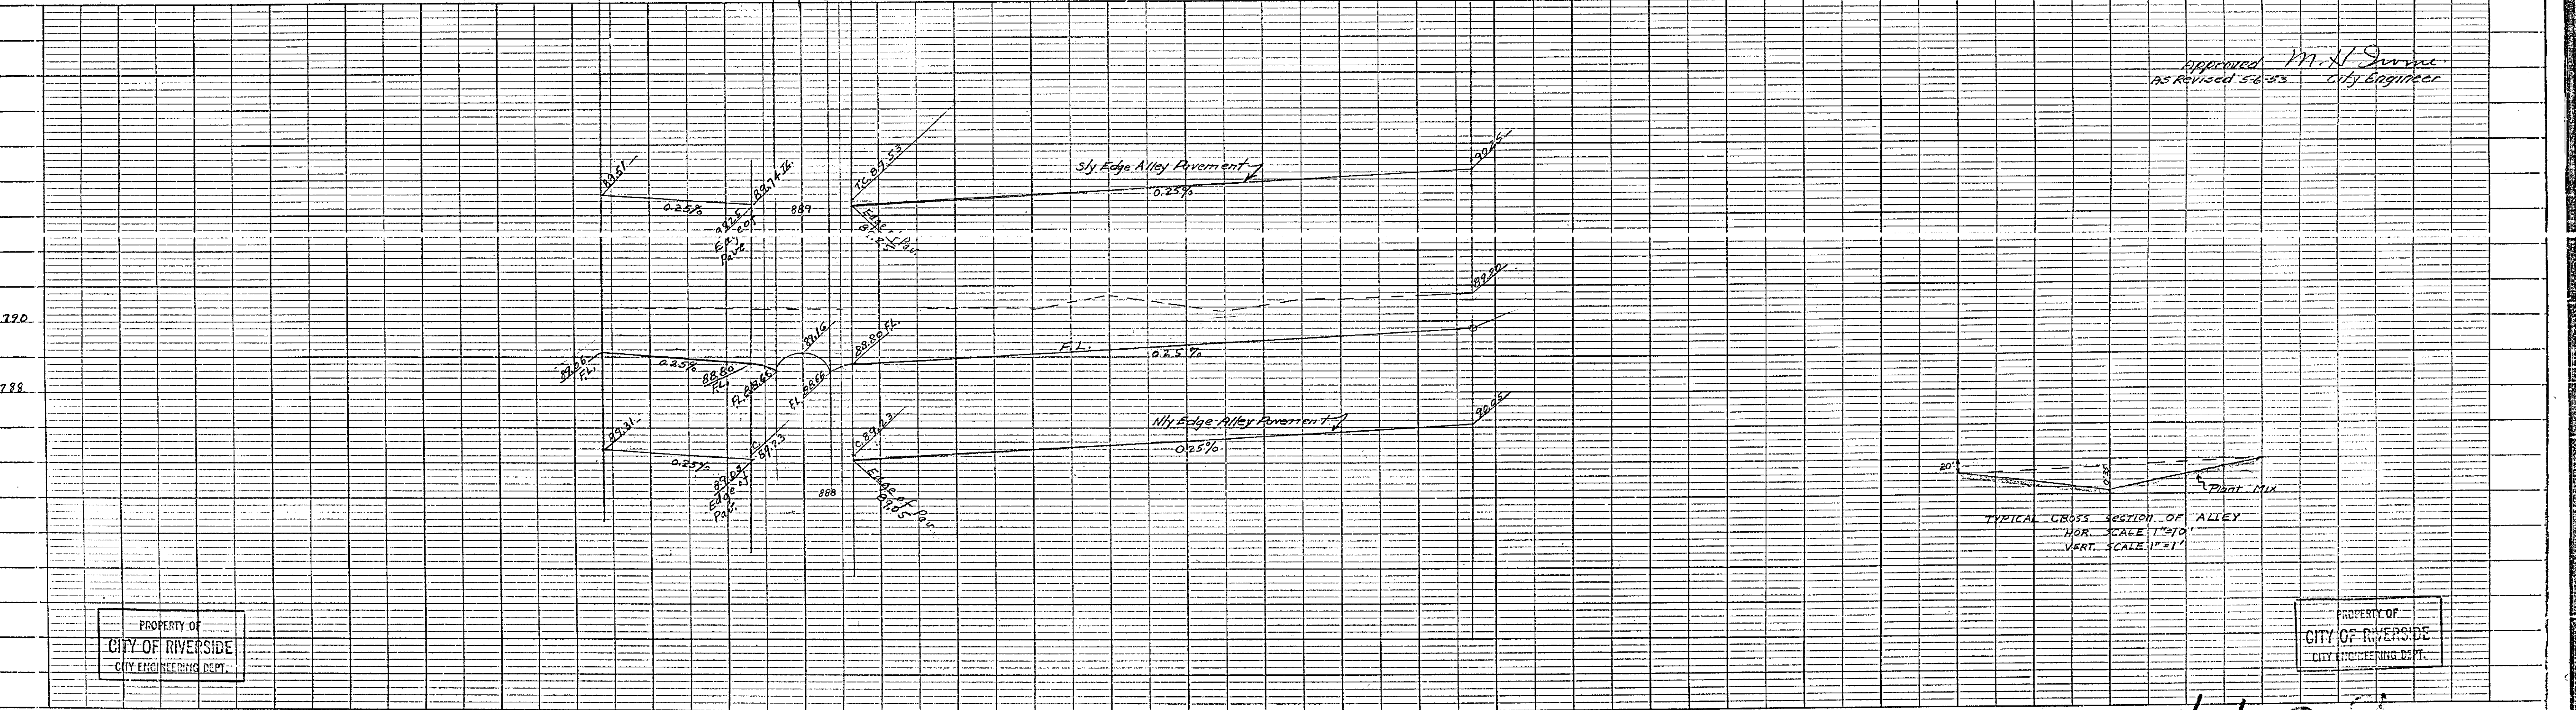 Approved M. H. Irvine
As Revised 5-6-53 City Engineer
89.51
0.25%
Edge of
Pave
889
T.C. 89.53
Edge of Pav.
Sly Edge Alley Pavement
0.25%
790
788
F.L.
0.25%
88.80
F.L.
89.16
F.L. 88.66
88.80 F.L.
F.L.
0.25%
89.31
0.25%
Edge of
Pav.
C.
89.23
888
C. 89.23
Edge of Pav.
89.05
Nly Edge Alley Pavement
0.25%
20'
Plant Mix
TYPICAL CROSS SECTION OF ALLEY
HOR. SCALE 1"=10'
VERT. SCALE 1"=1'
PROPERTY OF
CITY OF RIVERSIDE
CITY ENGINEERING DEPT.
PROPERTY OF
CITY OF RIVERSIDE
CITY ENGINEERING DEPT.